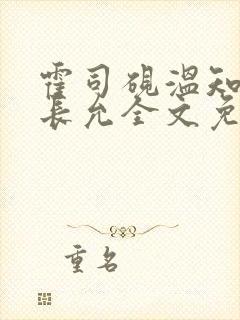 霍司砚温知
长允全文免
重名